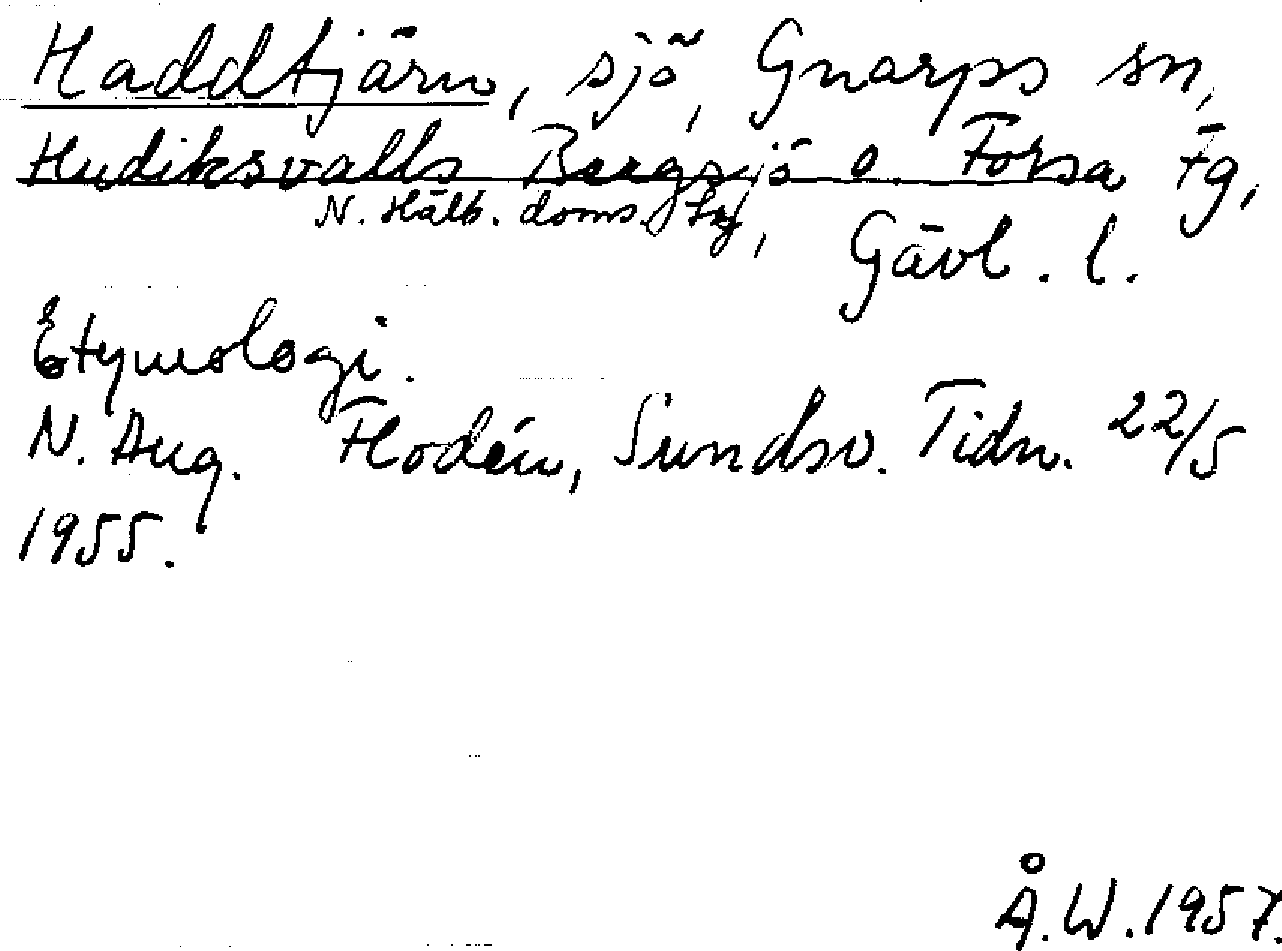 Haddtjärn, sjö, Gnarps sn,
Hudiksvalls Bergsjö o. Forsa Fg,
N. Häls. doms. , Gävl. l.
Etymologi.
N. Aug. Flodén, Sundsv. Tidn. 22/5
1955.
Å.W.1957.